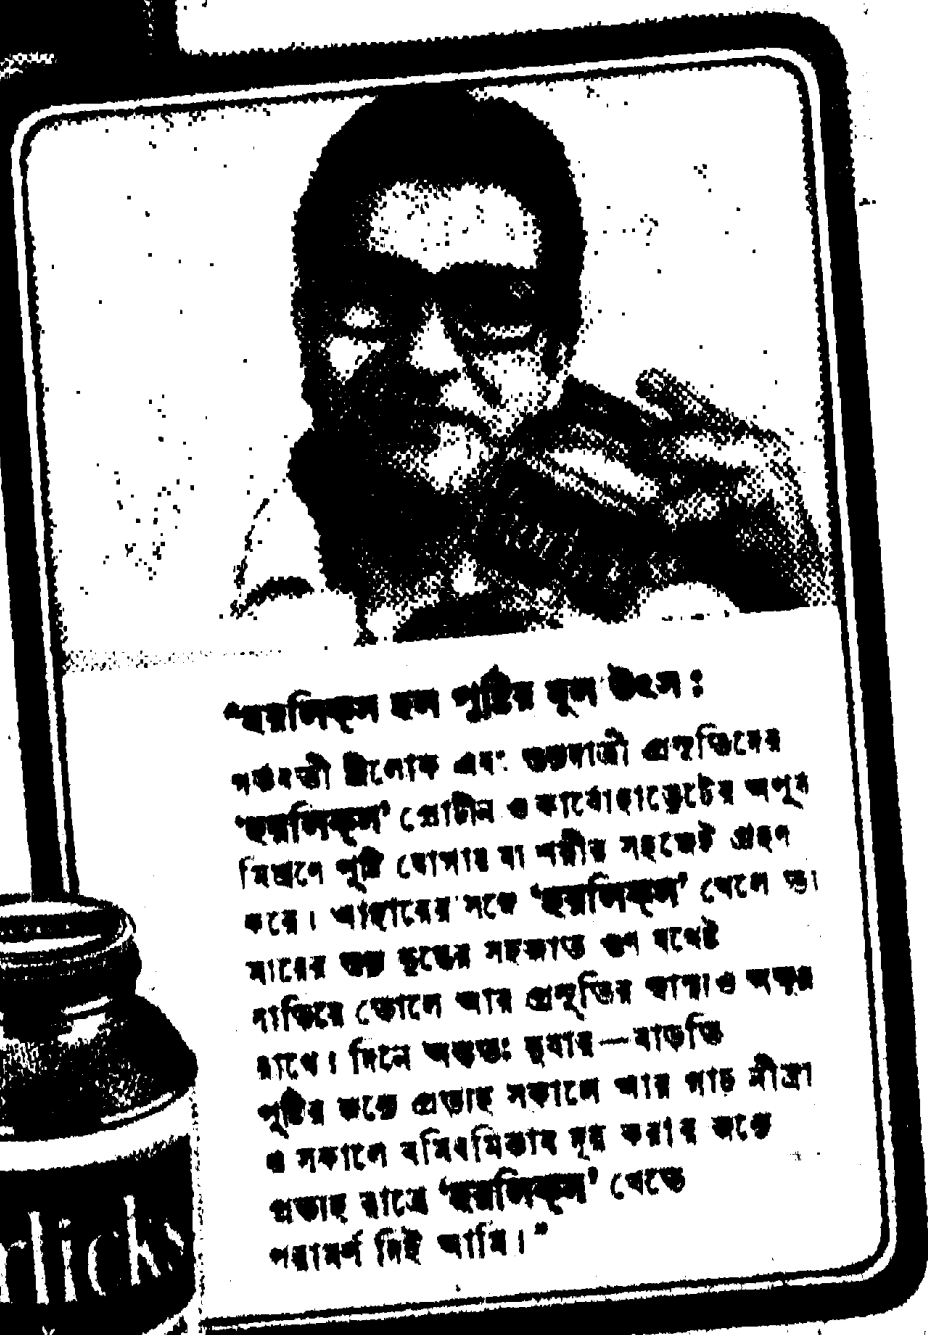 “হরলিক্‌স হল পুষ্টির মূল উৎস :
গর্ভবতী স্ত্রীলোক এবং স্তন্যদাত্রী প্রসূতিদের
‘হরলিক্‌স’ প্রোটীন ও কার্বোহাড্রেটের অপূর্ব
মিশ্রণে পুষ্টি যোগায় যা শরীর সহজেই গ্রহণ
করে। আহারের সঙ্গে ‘হরলিক্‌স’ খেলে তা
মায়ের স্তন্য দুগ্ধের সহজাত গুণ যথেষ্ট
বাড়িয়ে তোলে আর প্রসূতির স্বাস্থ্যও অক্ষুণ্ণ
রাখে। দিনে অন্ততঃ দুবার—বাড়তি
পুষ্টির জন্যে প্রত্যহ সকালে আর গাঢ় নীদ্রা
ও সকালে বমিবমিভাব দূর করার জন্যে
প্রত্যহ রাত্রে ‘হরলিক্‌স’ খেতে
পরামর্শ দিই আমি।”
rlicks